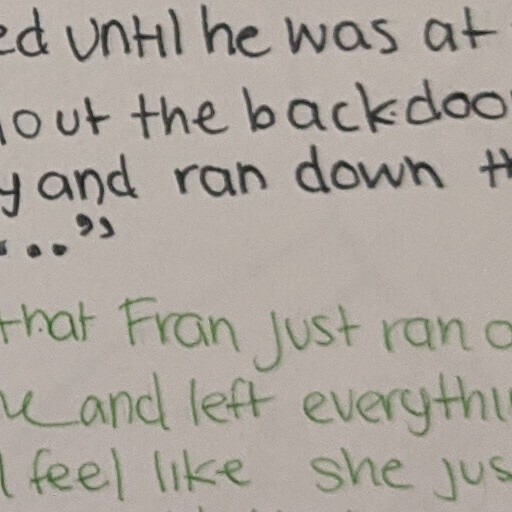 ed until he was at
out the backdoo
y and ran down th
..."
that Fran just ran o
and left everythi
I feel like she jus